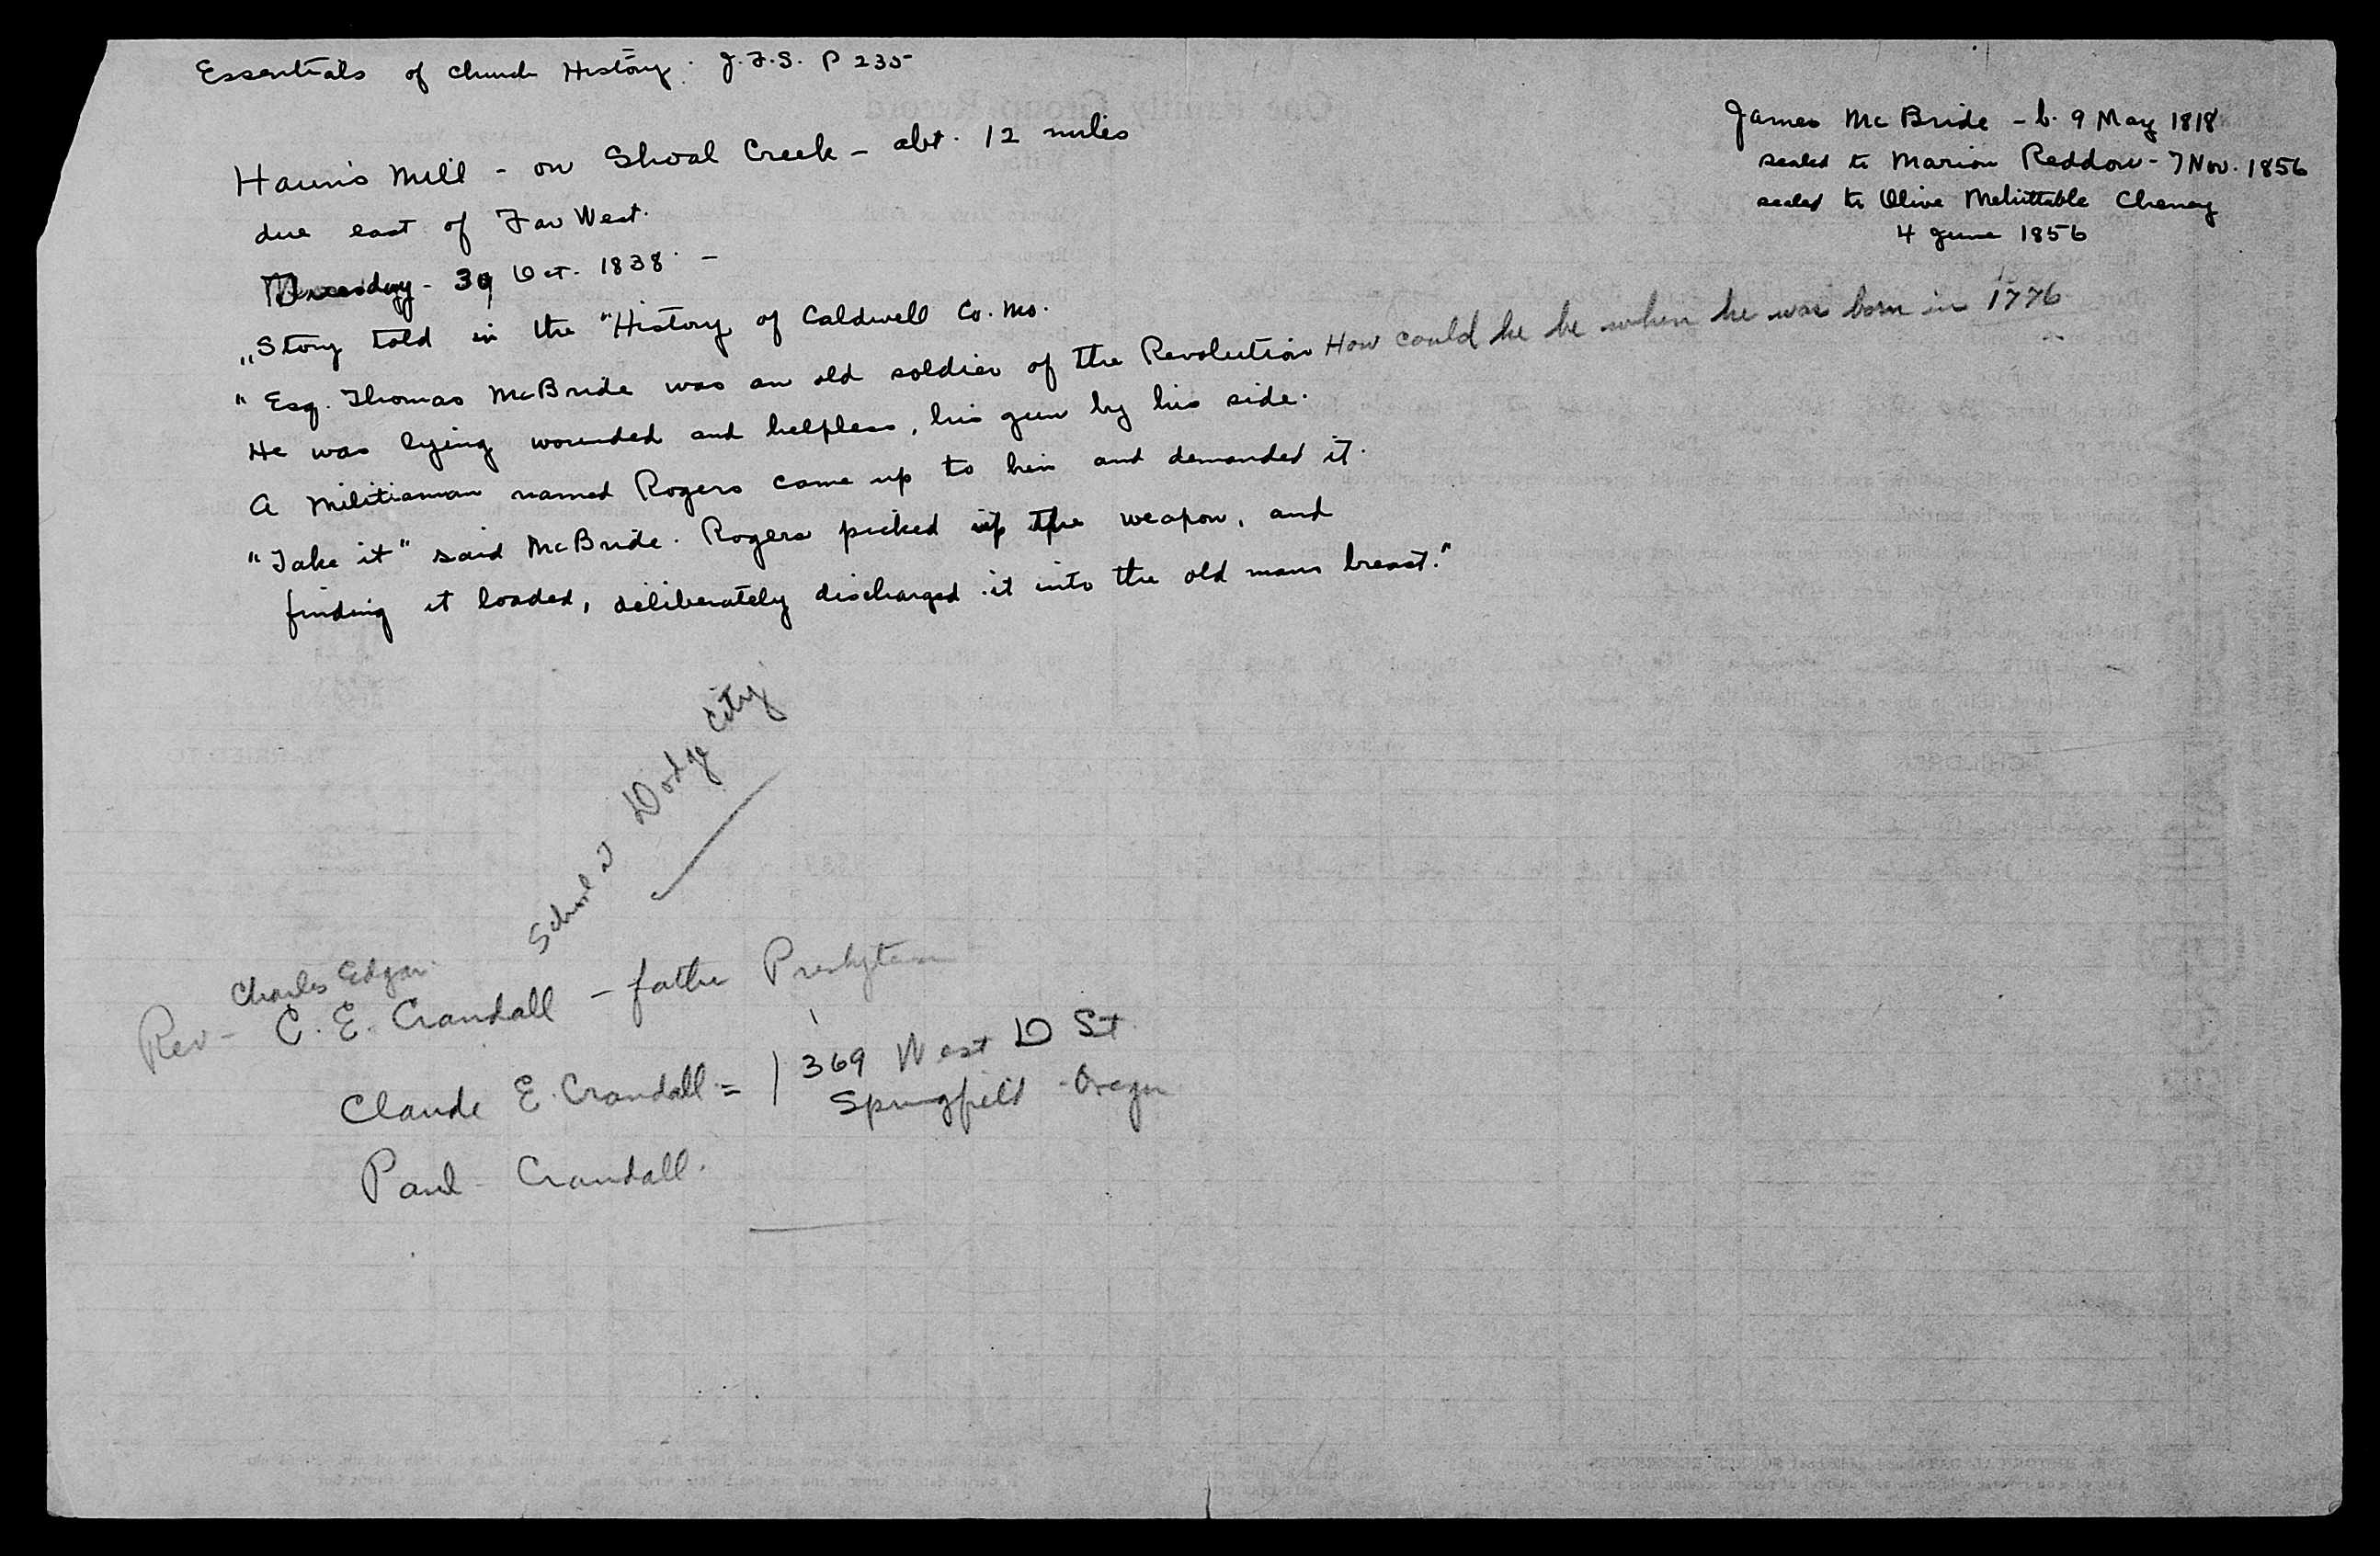 Essentials of Church History. J.F.S. P 235
James McBride - b. 9 May 1818
sealed to Marion Reddow - 7 Nov. 1856
sealed to Olive Mehittable Cheney
4 June 1856
Haun's Mill - on Shoal Creek - abt. 12 miles
due east of Far West.
30 Oct. 1838 -
"Story told in the "History of Caldwell Co. Mo.
" Esq. Thomas McBride was an old soldier of the Revolution How could he be when he was born in 1776
He was lying wounded and helpless, his gun by his side.
A militiaman named Rogers came up to him and demanded it.
"Take it" said McBride. Rogers picked up the weapon, and
finding it loaded, deliberately discharged it into the old mans breast."
School Dodge City
Charles Edgar
Rev - C. E. Crandall - father Presbyterian
Claude E. Crandall = 369 West D St.
Springfield - Oregon
Paul - Crandall.